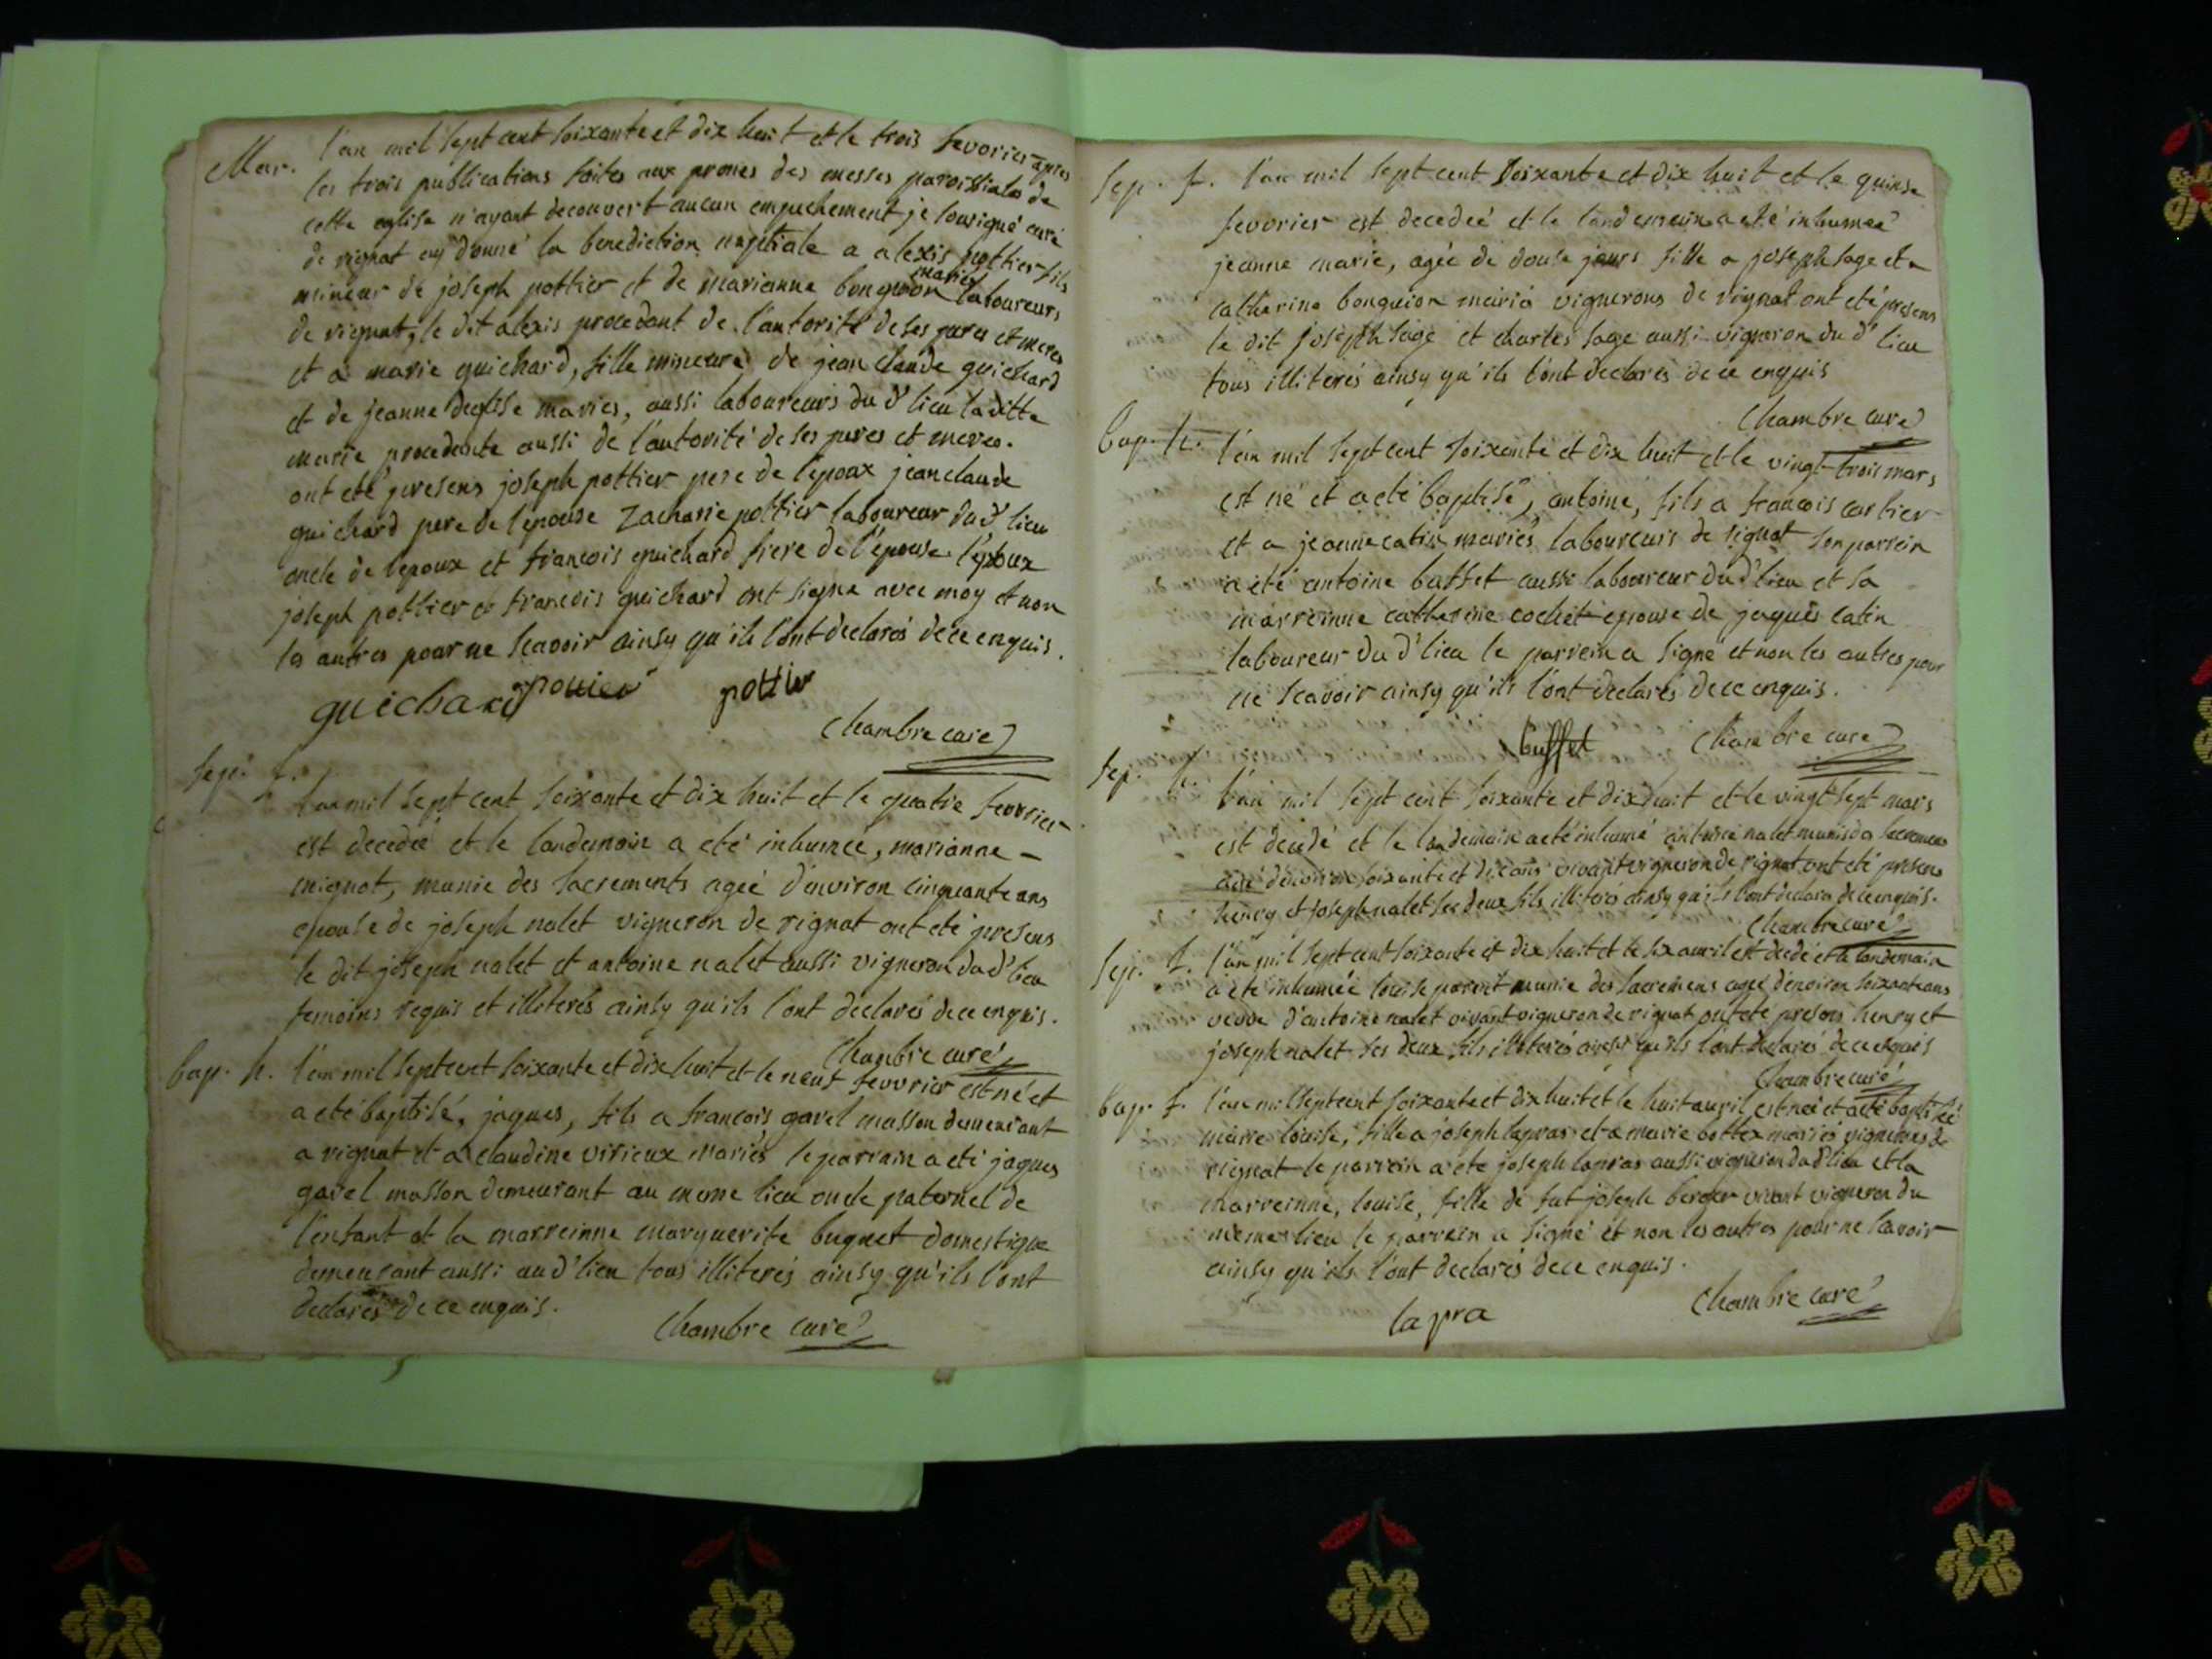 Mar. l'an mil sept cent soixante et dix huit et le trois fevorier apres
les trois publications faites aux prones des messes paroissiales de
cette eglise n'ayant decouvert aucun empechement je sousigné curé
de rignat ay donné la benediction nuptiale a alexis pottier fils
mineur de joseph pottier et de marianne bonguion mariés laboureurs
de rignat, le dit alexis procedant de l'autorité de ses peres et meres
et a marie guichard, fille mineure de jean claude guichard
et de jeanne deglise mariés, aussi laboureurs du d' lieu laditte
marie procedente aussi de l'autorité de ses peres et meres.
ont eté presens joseph pottier pere de l'epoux jean claude
guichard pere de l'epouse Zacharie pottier laboureur du d' lieu
oncle de l'epoux et francois guichard frere de l'epouse l'epoux
joseph pottier et francois guichard ont signe avec moy et non
les autres pour ne scavoir ainsy qu'ils l'ont declarés de ce enquis.
guichard pottier pottier
Chambre curé
Sep. f.
l'an mil sept cent soixante et dix huit et le quatre fevorier
est decedée et le landemain a eté inhumée, marianne
mignot, munie des sacrements agée d'environ cinquante ans
epouse de joseph nalet vigneron de rignat ont eté presens
le dit joseph nalet et antoine nalet aussi vigneron du d' lieu
temoins requis et illiterés ainsy qu'ils l'ont declarés de ce enquis.
Chambre curé
bap. h. l'an mil sept cent soixante et dix huit et le neuf fevorier est né et
a eté baptisé, jaques, fils a francois gavel masson demeurant
a rignat et a claudine virieux mariés le parrain a eté jaques
gavel masson demeurant au meme lieu oncle paternel de
l'enfant et la marreinne marguerite buguet domestique
demeurant aussi au d' lieu tous illiterés ainsy qu'ils l'ont
declarés de ce enquis.
Chambre curé
Sep. f. l'an mil sept cent soixante et dix huit et le quinse
fevorier est decedeé et le landemain a eté inhumeé
jeanne marie, agée de douse jours fille a joseph sage et a
catherine bonguion mariés vignerons de rignat ont eté presens
le dit joseph sage et charles sage aussi vigneron du d' lieu
tous illiterés ainsy qu'ils l'ont declarés de ce enquis
Chambre curé
bap. h. l'an mil sept cent soixante et dix huit et le vingt trois mars
est né et a eté baptisé, antoine, fils a francois carlier
et a jeanne catin mariés, laboureurs de rignat son parrein
a eté antoine buffet aussi laboureur du d' lieu et sa
marreinne catherine cochet epouse de jaques catin
laboureur du d' lieu le parrein a signé et non les autres pour
ne scavoir ainsy qu'ils l'ont declarés de ce enquis.
buffet Chambre curé
Sep. h. l'an mil sept cent soixante et dix huit et le vingt sept mars
est decedé et le landemain a eté inhumé antoine nalet munis des sacremens
agé d'environ soixante et dix ans vivant vigneron de rignat ont eté presens
henry et joseph nalet ses deux fils illiterés ainsy qu'ils l'ont declarés de ce enquis.
Chambre curé
Sep. f. l'an mil sept cent soixante et dix huit et le six avril est decedé et le landemain
a eté inhumée louise parent munie des sacremens agée d'environ soixante ans
veuve d'antoine nalet vivant vigneron de rignat ont eté presens henry et
joseph nalet ses deux fils illiterés ainsy qu'ils l'ont declarés de ce enquis
Chambre curé
bap. f. l'an mil sept cent soixante et dix huit et le huit avril est née et a eté baptisée
marie louise, fille a joseph lapras et a marie bottex mariés vignerons de
rignat le parrein a eté joseph lapras aussi vigneron du d' lieu et la
marreinne, louise, fille de fut joseph berger vivant vigneron du
meme lieu le parrein a signé et non les autres pour ne savoir
ainsy qu'ils l'ont declarés de ce enquis.
lapra Chambre curé